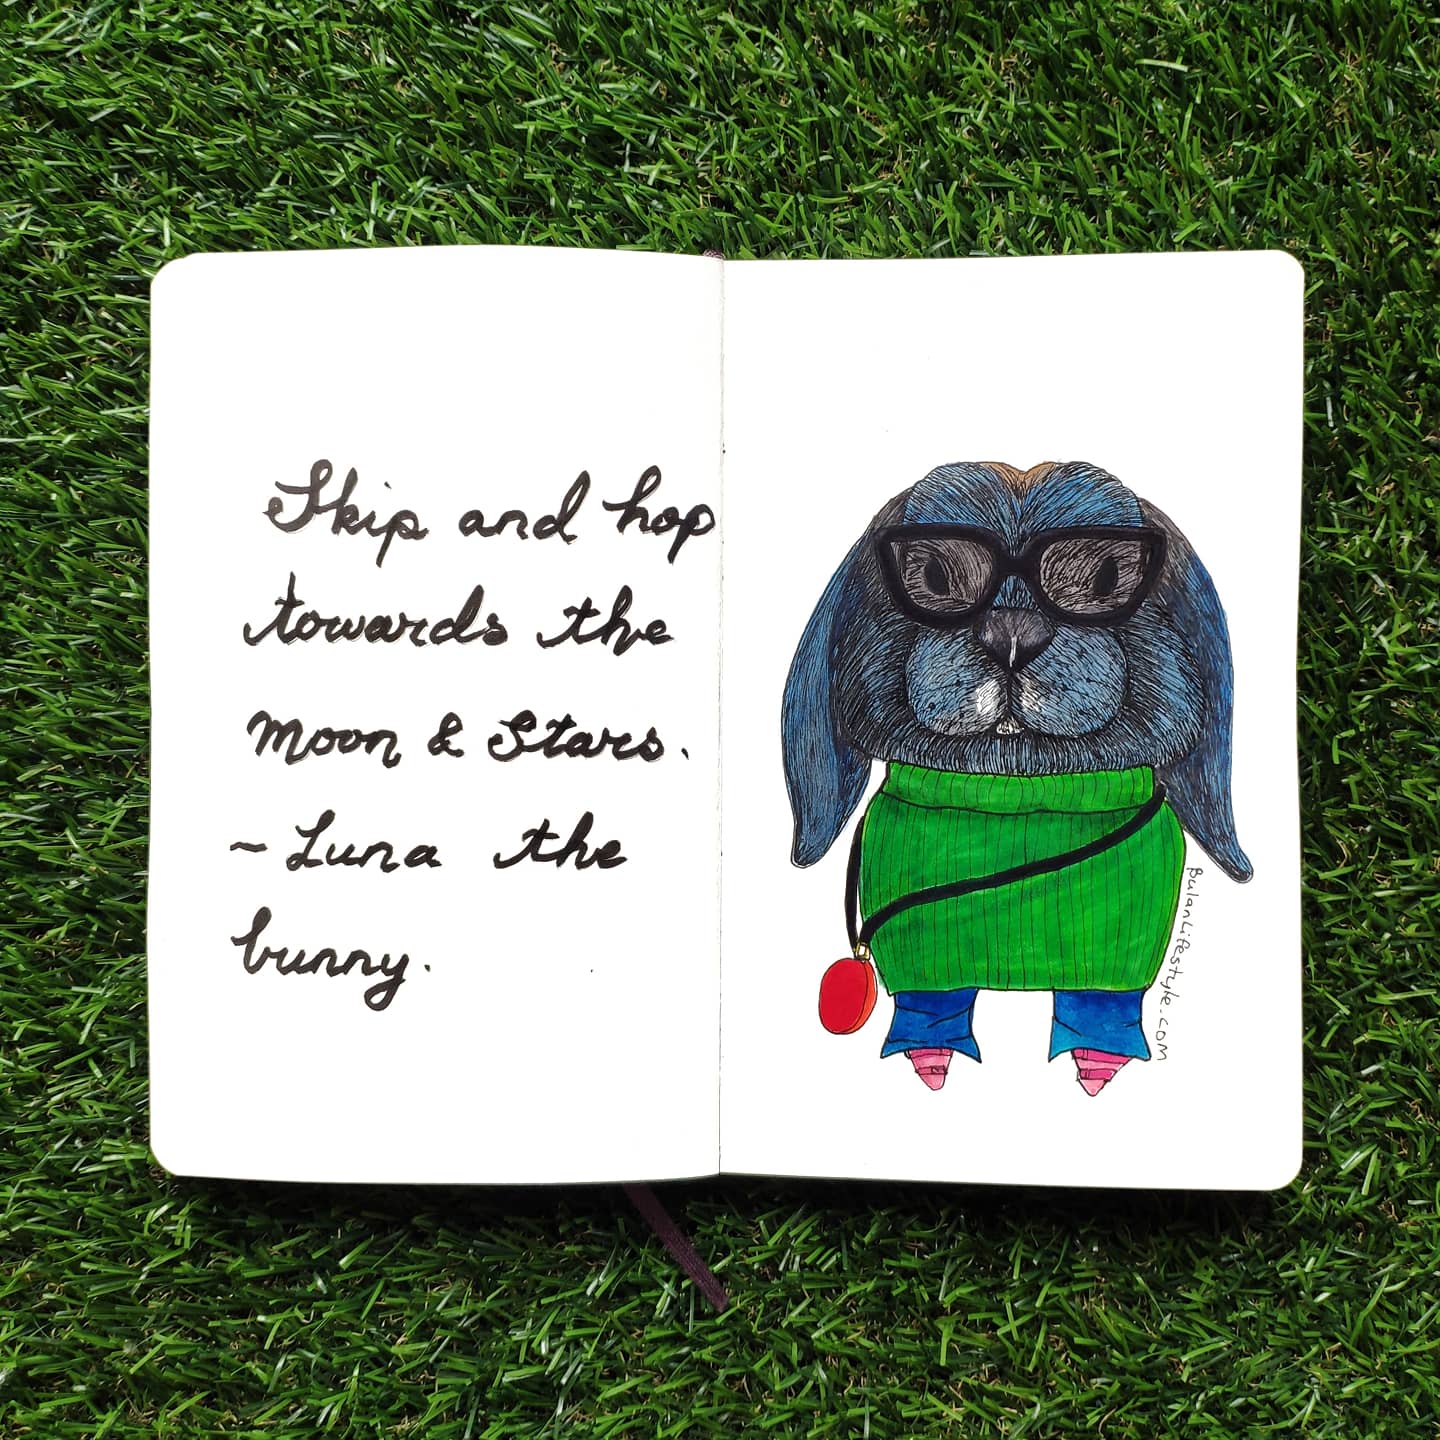 Skip and hop
towards the
Moon & Stars.
~ Luna the
bunny.
BulanLifestyle.com